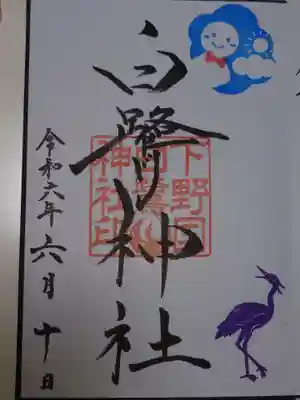 白鷺神社
下野国
神社印
令和六年 六月 十日